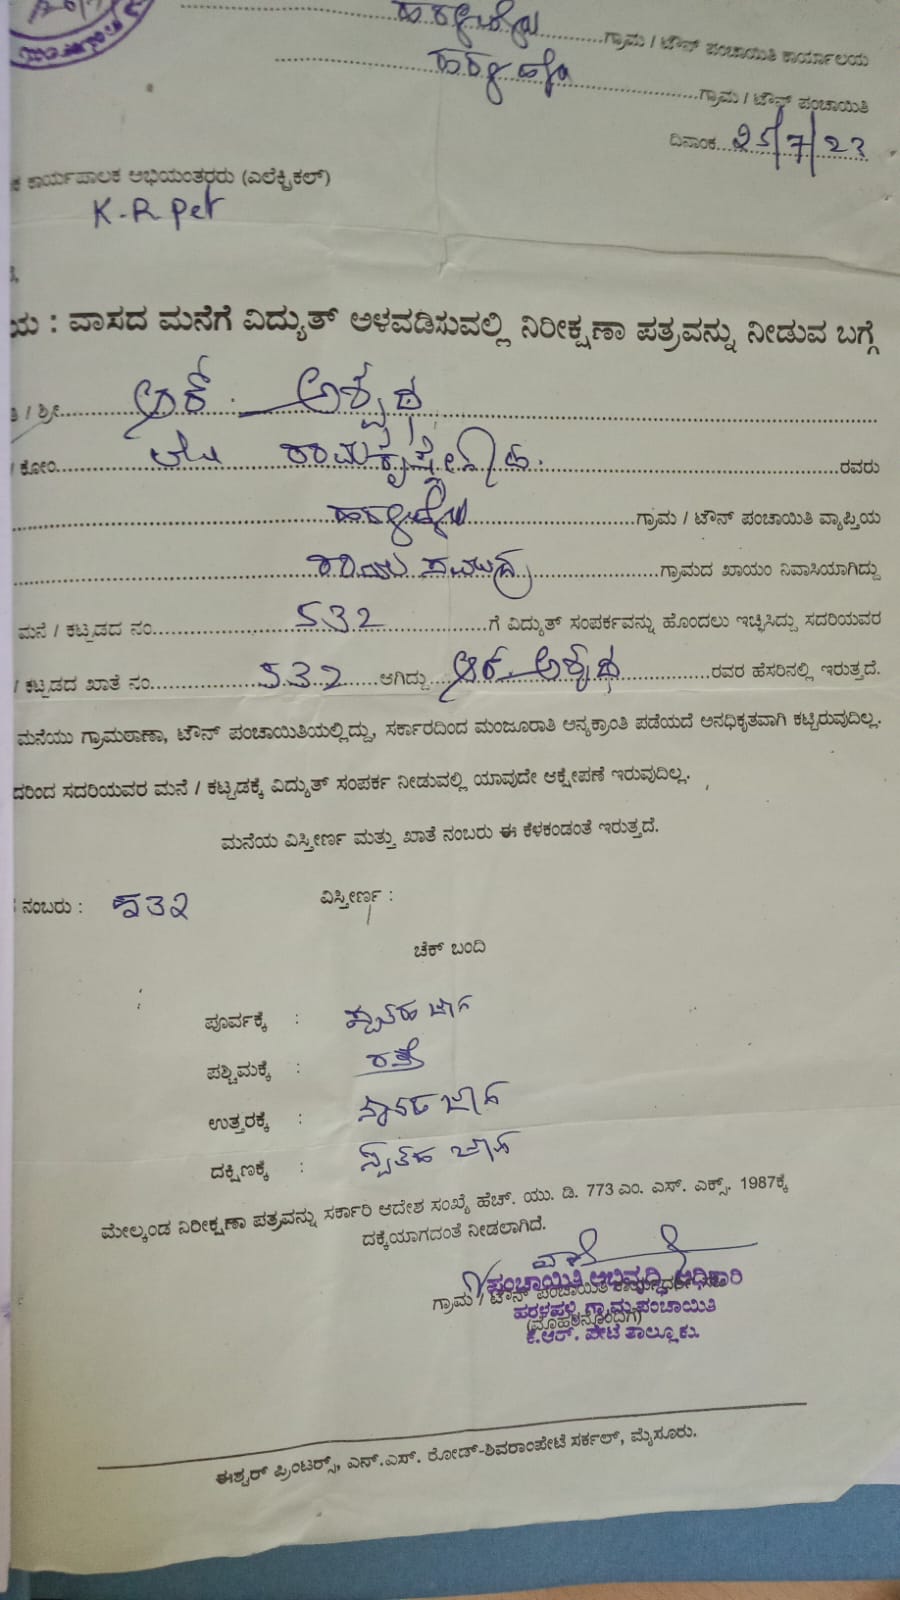 ಹರಳಹಳ್ಳಿ ಗ್ರಾಮ / ಟೌನ್ ಪಂಚಾಯಿತಿ ಕಾರ್ಯಾಲಯ
ಗ್ರಾಮ / ಟೌನ್ ಪಂಚಾಯಿತಿ
ದಿನಾಂಕ 25/7/23
ಕ ಕಾರ್ಯಪಾಲಕ ಅಭಿಯಂತರರು (ಎಲೆಕ್ಟ್ರಿಕಲ್)
K-R Pet
ಯ : ವಾಸದ ಮನೆಗೆ ವಿದ್ಯುತ್ ಅಳವಡಿಸುವಲ್ಲಿ ನಿರೀಕ್ಷಣಾ ಪತ್ರವನ್ನು ನೀಡುವ ಬಗ್ಗೆ
ತಿ / ಶ್ರೀ ಆರ್. ಅಶ್ವಥ
/ ಕೋಂ ರಾಮಕೃಷ್ಣೇಗೌಡ. ರವರು
ಹರಳಹಳ್ಳಿ ಗ್ರಾಮ / ಟೌನ್ ಪಂಚಾಯಿತಿ ವ್ಯಾಪ್ತಿಯ
ಗ್ರಾಮದ ಖಾಯಂ ನಿವಾಸಿಯಾಗಿದ್ದು
ಮನೆ / ಕಟ್ಟಡದ ನಂ 532 ಗೆ ವಿದ್ಯುತ್ ಸಂಪರ್ಕವನ್ನು ಹೊಂದಲು ಇಚ್ಛಿಸಿದ್ದು ಸದರಿಯವರ
/ ಕಟ್ಟಡದ ಖಾತೆ ನಂ 532 ಆಗಿದ್ದು ಆರ್. ಅಶ್ವಥ ರವರ ಹೆಸರಿನಲ್ಲಿ ಇರುತ್ತದೆ.
ಮನೆಯು ಗ್ರಾಮಠಾಣಾ, ಟೌನ್ ಪಂಚಾಯಿತಿಯಲ್ಲಿದ್ದು, ಸರ್ಕಾರದಿಂದ ಮಂಜೂರಾತಿ ಅನ್ಯಕ್ರಾಂತಿ ಪಡೆಯದೆ ಅನಧಿಕೃತವಾಗಿ ಕಟ್ಟಿರುವುದಿಲ್ಲ.
ದರಿಂದ ಸದರಿಯವರ ಮನೆ / ಕಟ್ಟಡಕ್ಕೆ ವಿದ್ಯುತ್ ಸಂಪರ್ಕ ನೀಡುವಲ್ಲಿ ಯಾವುದೇ ಆಕ್ಷೇಪಣೆ ಇರುವುದಿಲ್ಲ.
ಮನೆಯ ವಿಸ್ತೀರ್ಣ ಮತ್ತು ಖಾತೆ ನಂಬರು ಈ ಕೆಳಕಂಡಂತೆ ಇರುತ್ತದೆ.
ನಂಬರು : 532 ವಿಸ್ತೀರ್ಣ :
ಚೆಕ್ ಬಂದಿ
ಪೂರ್ವಕ್ಕೆ :
ಪಶ್ಚಿಮಕ್ಕೆ : ರಸ್ತೆ
ಉತ್ತರಕ್ಕೆ :
ದಕ್ಷಿಣಕ್ಕೆ :
ಮೇಲ್ಕಂಡ ನಿರೀಕ್ಷಣಾ ಪತ್ರವನ್ನು ಸರ್ಕಾರಿ ಆದೇಶ ಸಂಖ್ಯೆ ಹೆಚ್. ಯು. ಡಿ. 773 ಎಂ. ಎಸ್. ಎಕ್ಸ್. 1987ಕ್ಕೆ
ದಕ್ಕೆಯಾಗದಂತೆ ನೀಡಲಾಗಿದೆ.
ಪಂಚಾಯಿತಿ ಅಭಿವೃದ್ಧಿ ಅಧಿಕಾರಿ
ಗ್ರಾಮ / ಟೌನ್ ಪಂಚಾಯಿತಿ
ಹರಳಹಳ್ಳಿ ಗ್ರಾಮ ಪಂಚಾಯಿತಿ
(ಮೊಹರಿನೊಂದಿಗೆ)
ಕೆ.ಆರ್. ಪೇಟೆ ತಾಲ್ಲೂಕು.
ಈಶ್ವರ್ ಪ್ರಿಂಟರ್ಸ್, ಎನ್.ಎಸ್. ರೋಡ್-ಶಿವರಾಂಪೇಟೆ ಸರ್ಕಲ್, ಮೈಸೂರು.